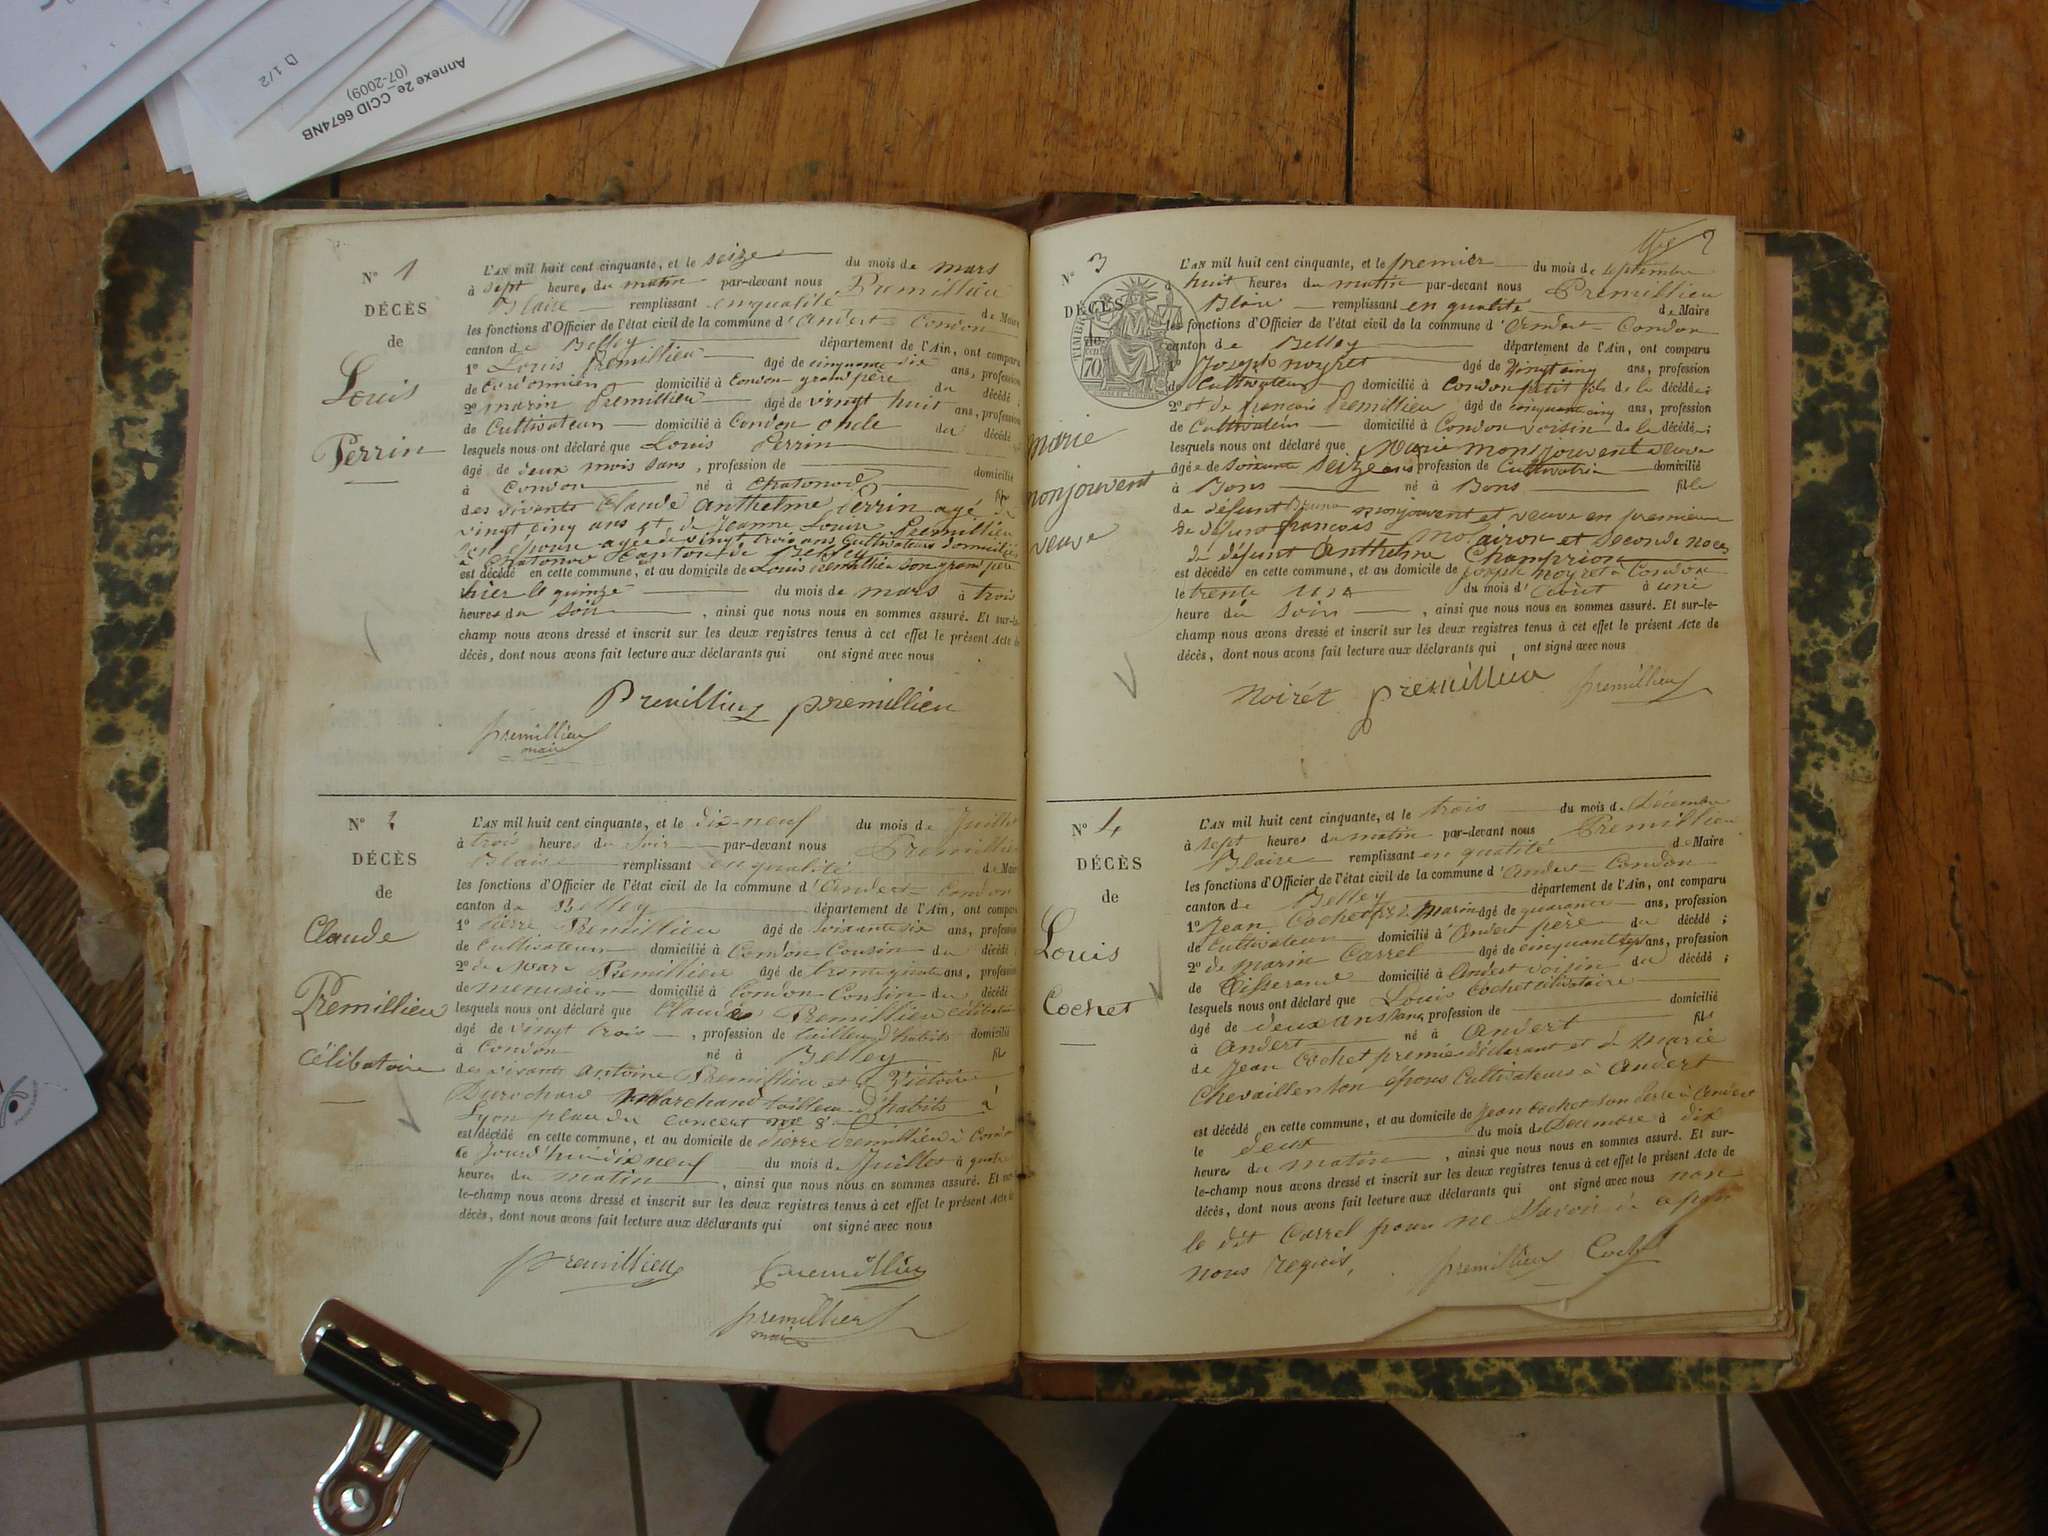 D 1/2
Annexe 2e_CCID 6674NB
(07-2009)
N° 1
DÉCÈS
de
Louis
Perrin
L'AN mil huit cent cinquante, et le seize du mois de mars
à sept heures du matin par-devant nous Premillieu
Blaise remplissant en qualité de Maire
les fonctions d'Officier de l'état civil de la commune d'Andert-Condon
canton de Belley département de l'Ain, ont comparu
1° Louis Premillieu âgé de cinquante six ans, profession
de cordonnier domicilié à Condon grand père du décédé ;
2° marin Premillieu âgé de vingt huit ans, profession
de Cultivateur domicilié à Condon oncle du décédé
lesquels nous ont déclaré que Louis Perrin
âgé de deux mois sans, profession de domicilié
à Condon né à Chatonod fils
des vivants Claude Anthelme Perrin agé de
vingt cinq ans et de Jeanne Louise Premillieu
son epouse agée de vingt trois ans Cultivateurs domiciliés
à Chatonod Canton de Belley
est décédé en cette commune, et au domicile de Louis Premillieu son grand père
hier le quinze du mois de mars à trois
heures du soir, ainsi que nous nous en sommes assuré. Et sur-le-
champ nous avons dressé et inscrit sur les deux registres tenus à cet effet le présent Acte de
décès, dont nous avons fait lecture aux déclarants qui ont signé avec nous
Premillieu premillieu
premillieu
maire
N° 2
DÉCÈS
de
Claude
Premillieu
Célibataire
L'AN mil huit cent cinquante, et le dix-neuf du mois de Juillet
à trois heures du soir par-devant nous Premillieu
Blaise remplissant en qualité de Maire
les fonctions d'Officier de l'état civil de la commune d'Andert-Condon
canton de Belley département de l'Ain, ont comparu
1° Pierre Premillieu âgé de soixante six ans, profession
de Cultivateur domicilié à Condon Cousin du décédé
2° de Marc Premillieu âgé de trente quatre ans, profession
de menuisier domicilié à Condon Cousin du décédé
lesquels nous ont déclaré que Claude Premillieu célibataire
âgé de vingt trois, profession de tailleur d'habits domicilié
à Condon né à Belley fils
des vivants Antoine Premillieu et Victoire
Durochard Marchand tailleur d'habits à
Lyon place du concert no 8
est décédé en cette commune, et au domicile de Pierre Premillieu à Condon
ce Jourd'hui dix neuf du mois de Juillet à quatre
heures du matin, ainsi que nous nous en sommes assuré. Et sur-
le-champ nous avons dressé et inscrit sur les deux registres tenus à cet effet le présent Acte de
décès, dont nous avons fait lecture aux déclarants qui ont signé avec nous
premillieu Premillieu
premillieu
maire
2
N° 3
DÉCÈS
de
marie
monjouvent
veuve
TIMBRE
70
L'AN mil huit cent cinquante, et le premier du mois de septembre
à huit heures du matin par-devant nous Premillieu
Blaise remplissant en qualité de Maire
les fonctions d'Officier de l'état civil de la commune d'Andert-Condon
canton de Belley département de l'Ain, ont comparu
1° Joseph noyret âgé de vingt cinq ans, profession
de Cultivateur domicilié à Condon petit fils de la décédée;
2° et de françois Premillieu âgé de cinquante cinq ans, profession
de Cultivateur domicilié à Condon voisin de la décédée;
lesquels nous ont déclaré que Marie monjouvent veuve
âgée de soixante seize ans profession de Cultivatrice domicilié
à Bons né à Bons fille
de défunt Bruno monjouvent et veuve en premiere
de défunt françois Molairon et seconde noces
de défunt Anthelme Champrion
est décédé en cette commune, et au domicile de joseph noyret à Condon
le trente un du mois d'août à une
heure du soir, ainsi que nous nous en sommes assuré. Et sur-le-
champ nous avons dressé et inscrit sur les deux registres tenus à cet effet le présent Acte de
décès, dont nous avons fait lecture aux déclarants qui ont signé avec nous
Noirét premillieu premillieu
N° 4
DÉCÈS
de
Louis
Cochet
L'AN mil huit cent cinquante, et le trois du mois de Décembre
à sept heures du matin par-devant nous Premillieu
Blaise remplissant en qualité de Maire
les fonctions d'Officier de l'état civil de la commune d'Andert-Condon
canton de Belley département de l'Ain, ont comparu
1° Jean Cochet marin âgé de quarante ans, profession
de Cultivateur domicilié à Andert père du décédé ;
2° de marin Carrel âgé de cinquante sept ans, profession
de Tisserand domicilié à Andert voisin du décédé ;
lesquels nous ont déclaré que Louis Cochet célibataire
âgé de deux ans sans profession de domicilié
à Andert né à Andert fils
de Jean Cochet premier déclarant et de Marie
Chevailler son épouse Cultivateurs à Andert
est décédé en cette commune, et au domicile de Jean Cochet son père à Andert
le deux du mois de Décembre à dix
heures du matin, ainsi que nous nous en sommes assuré. Et sur-
le-champ nous avons dressé et inscrit sur les deux registres tenus à cet effet le présent Acte de
décès, dont nous avons fait lecture aux déclarants qui ont signé avec nous non
le dit Carrel pour ne savoir de ce par
nous Requis,
premillieu Cochet